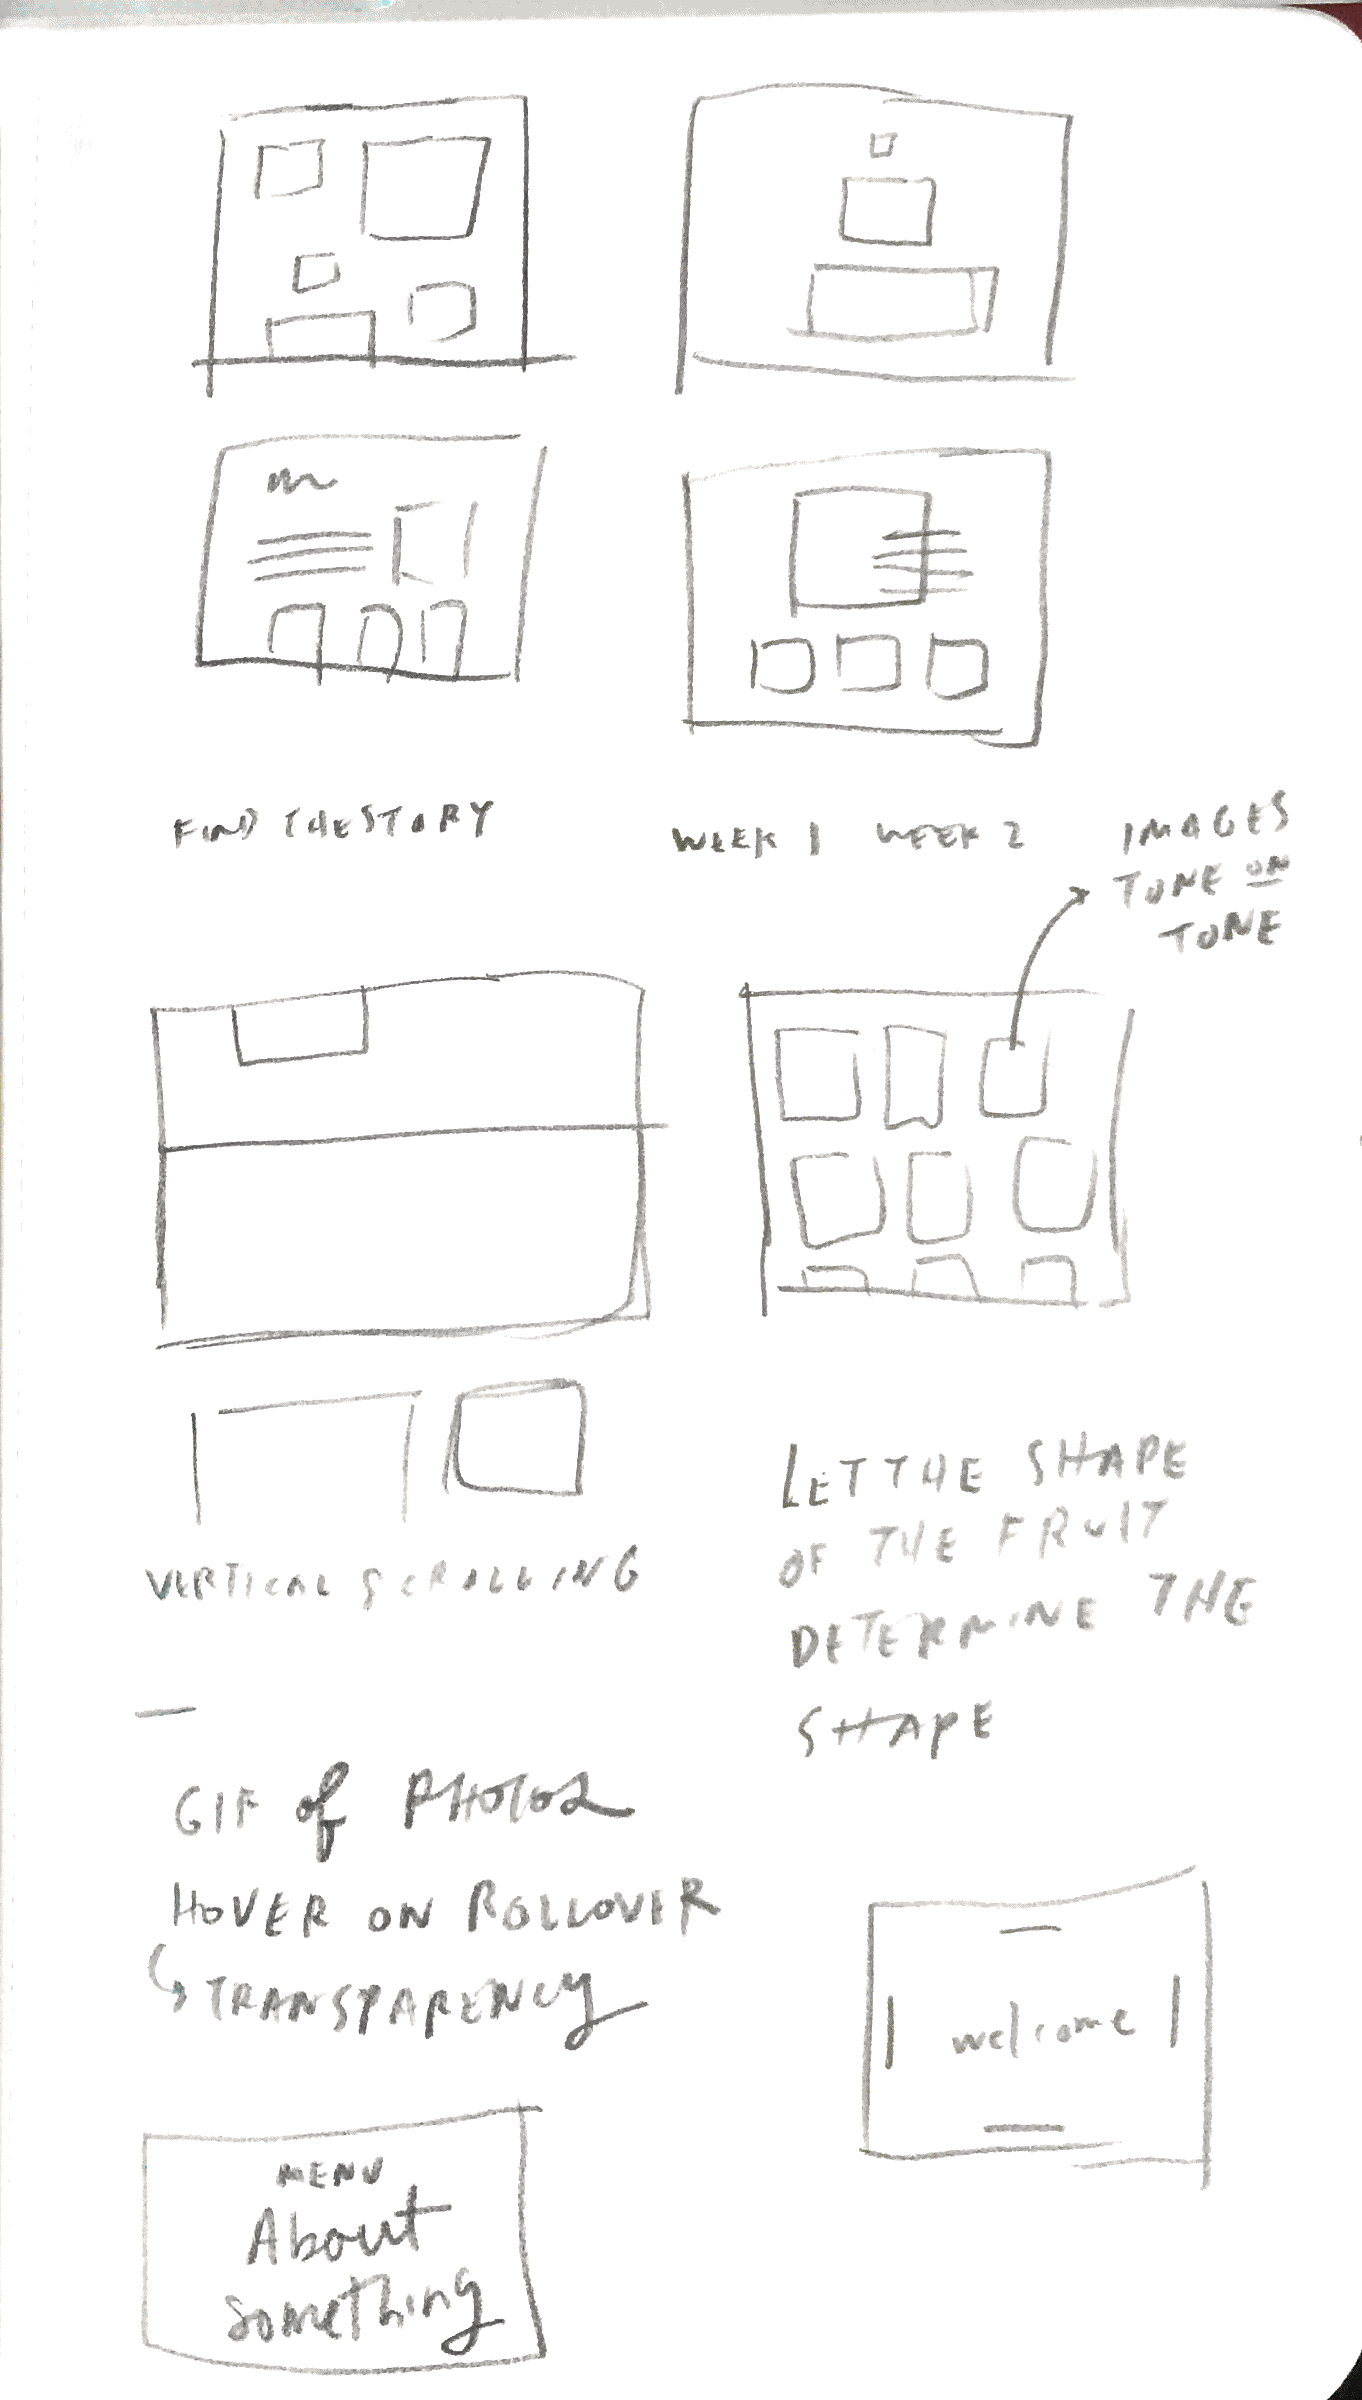 FIND THE STORY
WEEK 1 WEEK 2
IMAGES
TONE ON
TONE
VERTICAL SCROLLING
LET THE SHAPE
OF THE FRUIT
DETERMINE THE
SHAPE
GIF of PHOTOS
HOVER ON ROLLOVER
TRANSPARENCY
welcome
MENU
About
something